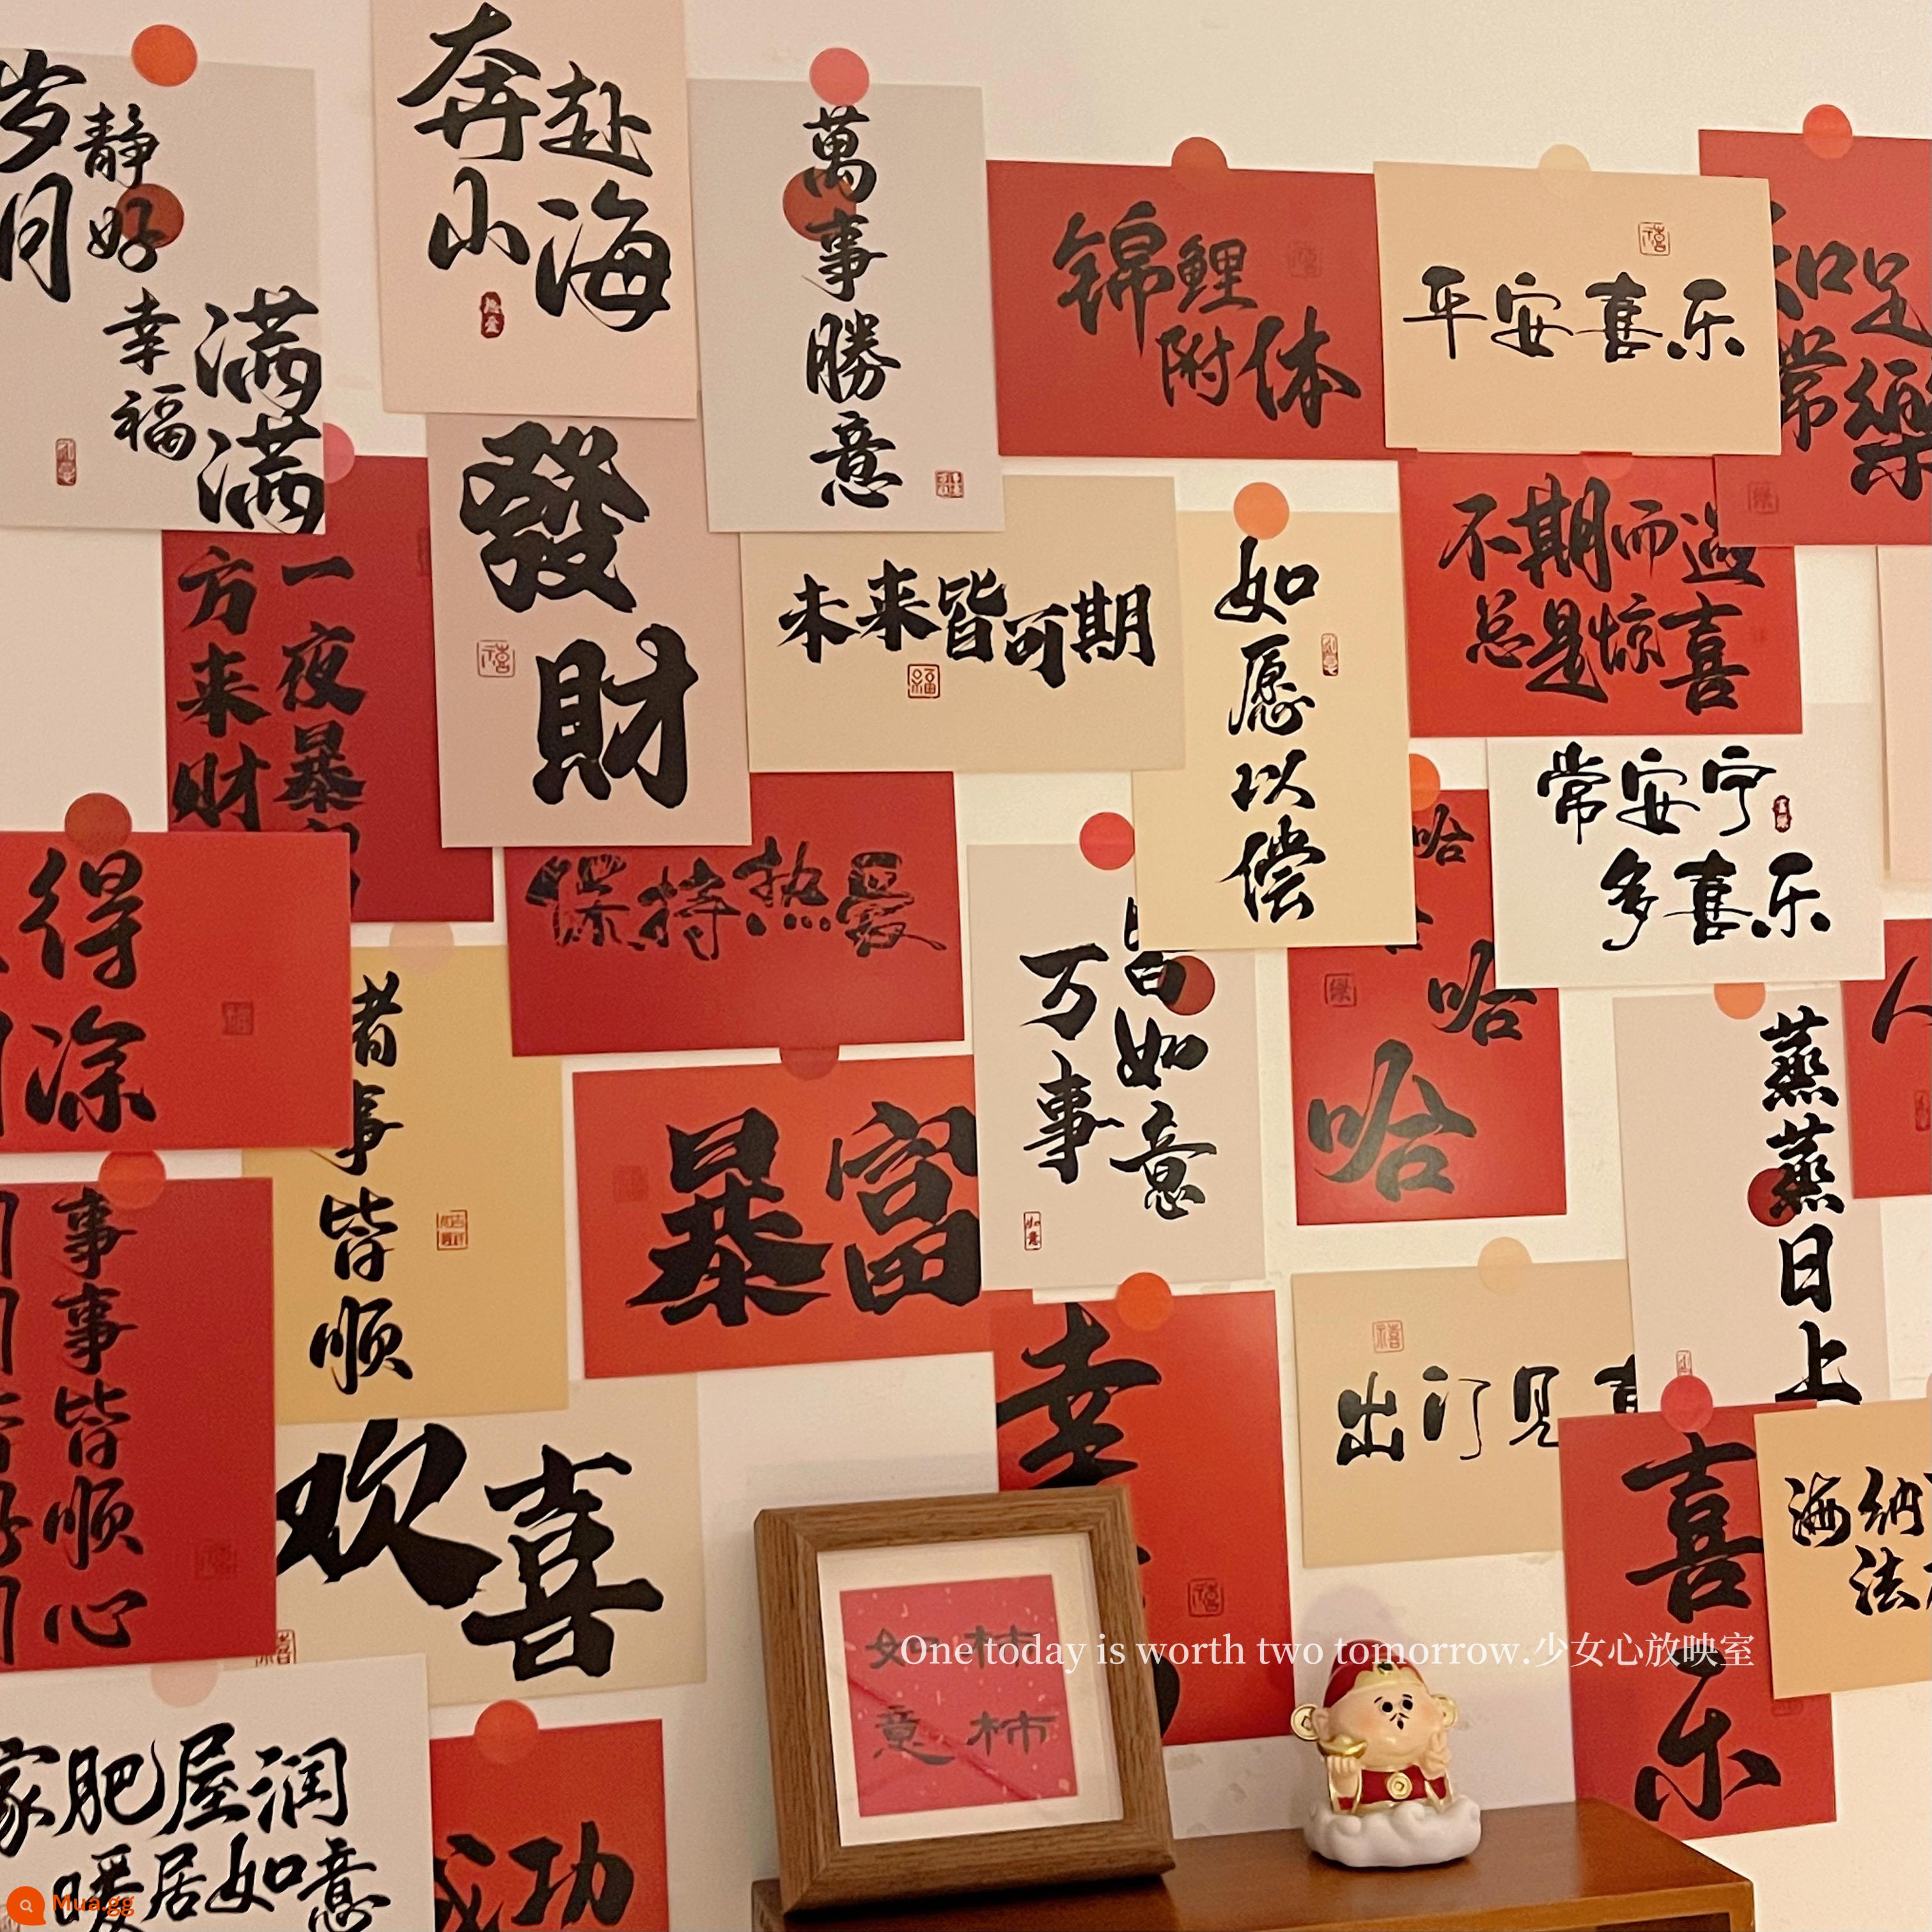 岁月
静好
幸福
满满
奔赴
山海
萬事勝意
锦鲤
附体
平安喜乐
知足
常樂
一夜暴富
方来财
發
財
未来皆可期
如愿以偿
不期而遇
总是惊喜
常安宁
多喜乐
得
涂
诸事皆顺
保持热爱
万事
皆如意
哈
哈
哈
人
蒸蒸日上
事事皆顺心
暴富
幸
出门见喜
喜
乐
海纳
法
欢喜
如柿
意柿
One today is worth two tomorrow.少女心放映室
家肥屋润
暖居如意
成功
Mua.gg